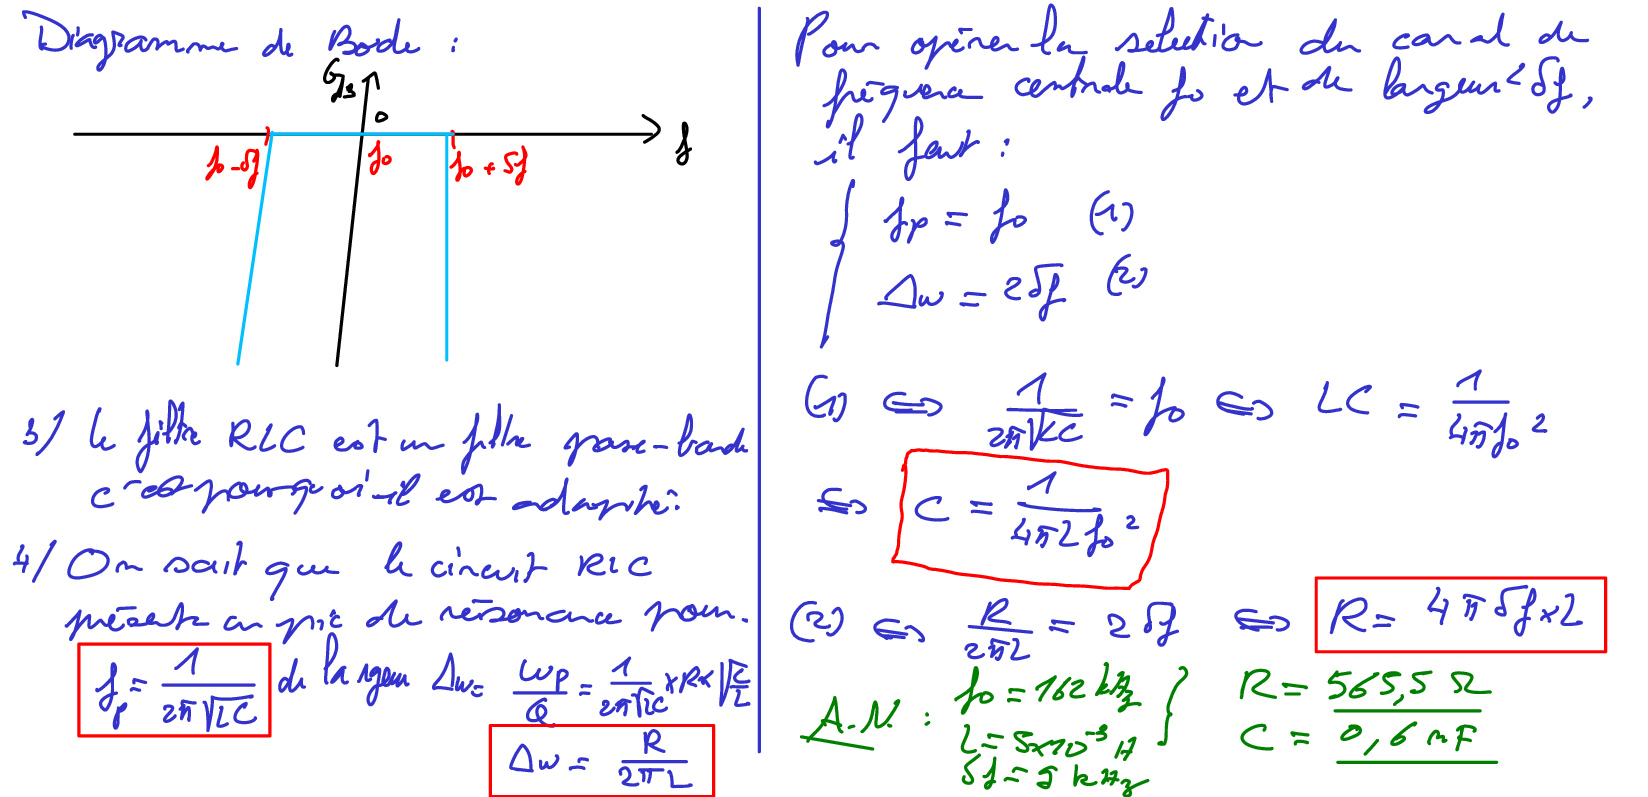 Diagramme de Bode :
G_dB
0
f
f0 - δf
f0
f0 + δf
3/ le filtre RLC est un filtre passe-bande
c'est pourquoi il est adapté.
4/ On sait que le circuit RLC
présente un pic de résonance pour.
f_p = 1/(2π√(LC)) de largeur Δw = w_p/Q = 1/(2π√(LC)) × R × √(C/L)
Δw = R/(2πL)
Pour opérer la sélection du canal de
fréquence centrale f0 et de largeur 2δf,
il faut :
f_p = f0 (1)
Δw = 2δf (2)
(1) ⇔ 1/(2π√(LC)) = f0 ⇔ LC = 1/(4πf0²)
⇔ C = 1/(4πLf0²)
(2) ⇔ R/(2πL) = 2δf ⇔ R = 4πδf×L
A.N. : f0 = 162 kHz
L = 5×10⁻³ H
δf = 9 kHz
R = 565,5 Ω
C = 0,6 nF